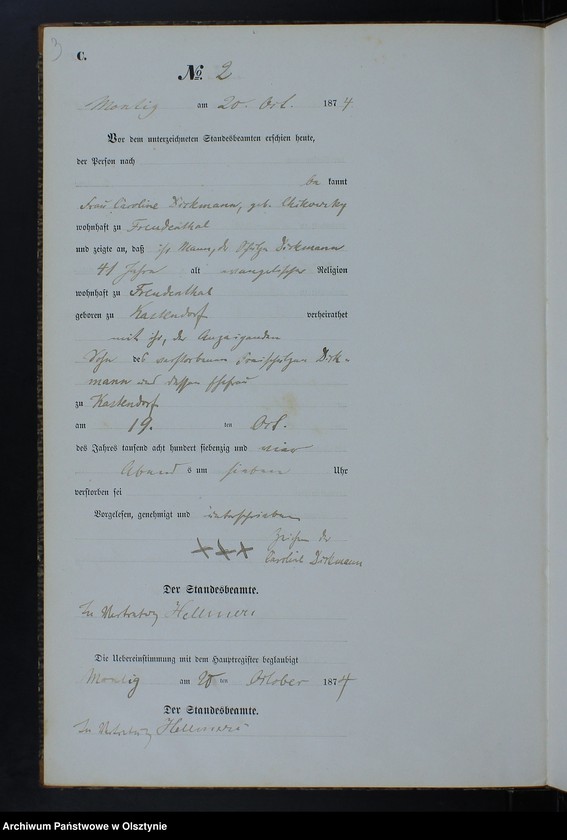 3
C.
№ 2
am 20. Oct. 1874
Vor dem unterzeichneten Standesbeamten erschien heute,
der Person nach
be kannt
Frau Caroline Dirkmann, geb.
wohnhaft zu Freudenthal
und zeigte an, daß ihr Mann, der Dirkmann
41 Jahre alt evangelischer Religion
wohnhaft zu Freudenthal
geboren zu Kastendorf verheirathet
mit ihr, der Anzeigenden
Sohn des verstorbenen Dirk-
mann und dessen Ehefrau
zu Kastendorf
am 19. ten Oct.
des Jahres tausend acht hundert siebenzig und vier
Abend s um sieben Uhr
verstorben sei
Vorgelesen, genehmigt und unterschrieben
Zeichen der
+++ Caroline Dirkmann
Der Standesbeamte.
In Vertretung
Die Uebereinstimmung mit dem Hauptregister beglaubigt
am 20 ten October 1874
Der Standesbeamte.
In Vertretung
Archiwum Państwowe w Olsztynie